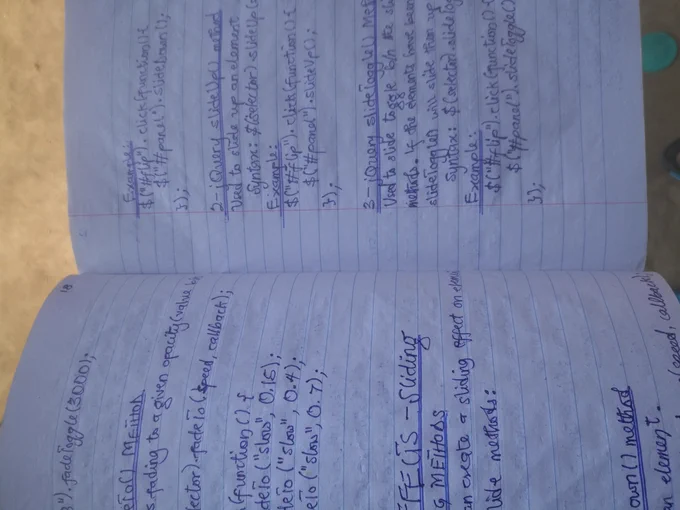 18
3").fadeToggle(3000);
eTo() METHOD
s fading to a given opacity (value b
lector).fadeTo(speed, callback);
(function() {
deTo("slow", 0.15);
deTo("slow", 0.4);
deTo("slow", 0.7);
FFECTS - SLIDING
G METHODS
an create a sliding effect on elem
lide methods:
own() method
an element.
(speed, callback)
Example:
$("#flip").click(function(){
$("#panel").slideDown();
});
2-jQuery slideUp() method
Used to slide up an element
Syntax: $(selector).slideUp(
Example:
$("#flip").click(function(){
$("#panel").slideUp();
});
3-jQuery slideToggle() Met
Used to slide toggle b/n the sli
methods. If the elements have been
slideToggle() will slide them up
Syntax: $(selector).slideTog
Example:
$("#flip").click(function(){
$("#panel").slideToggle()
});